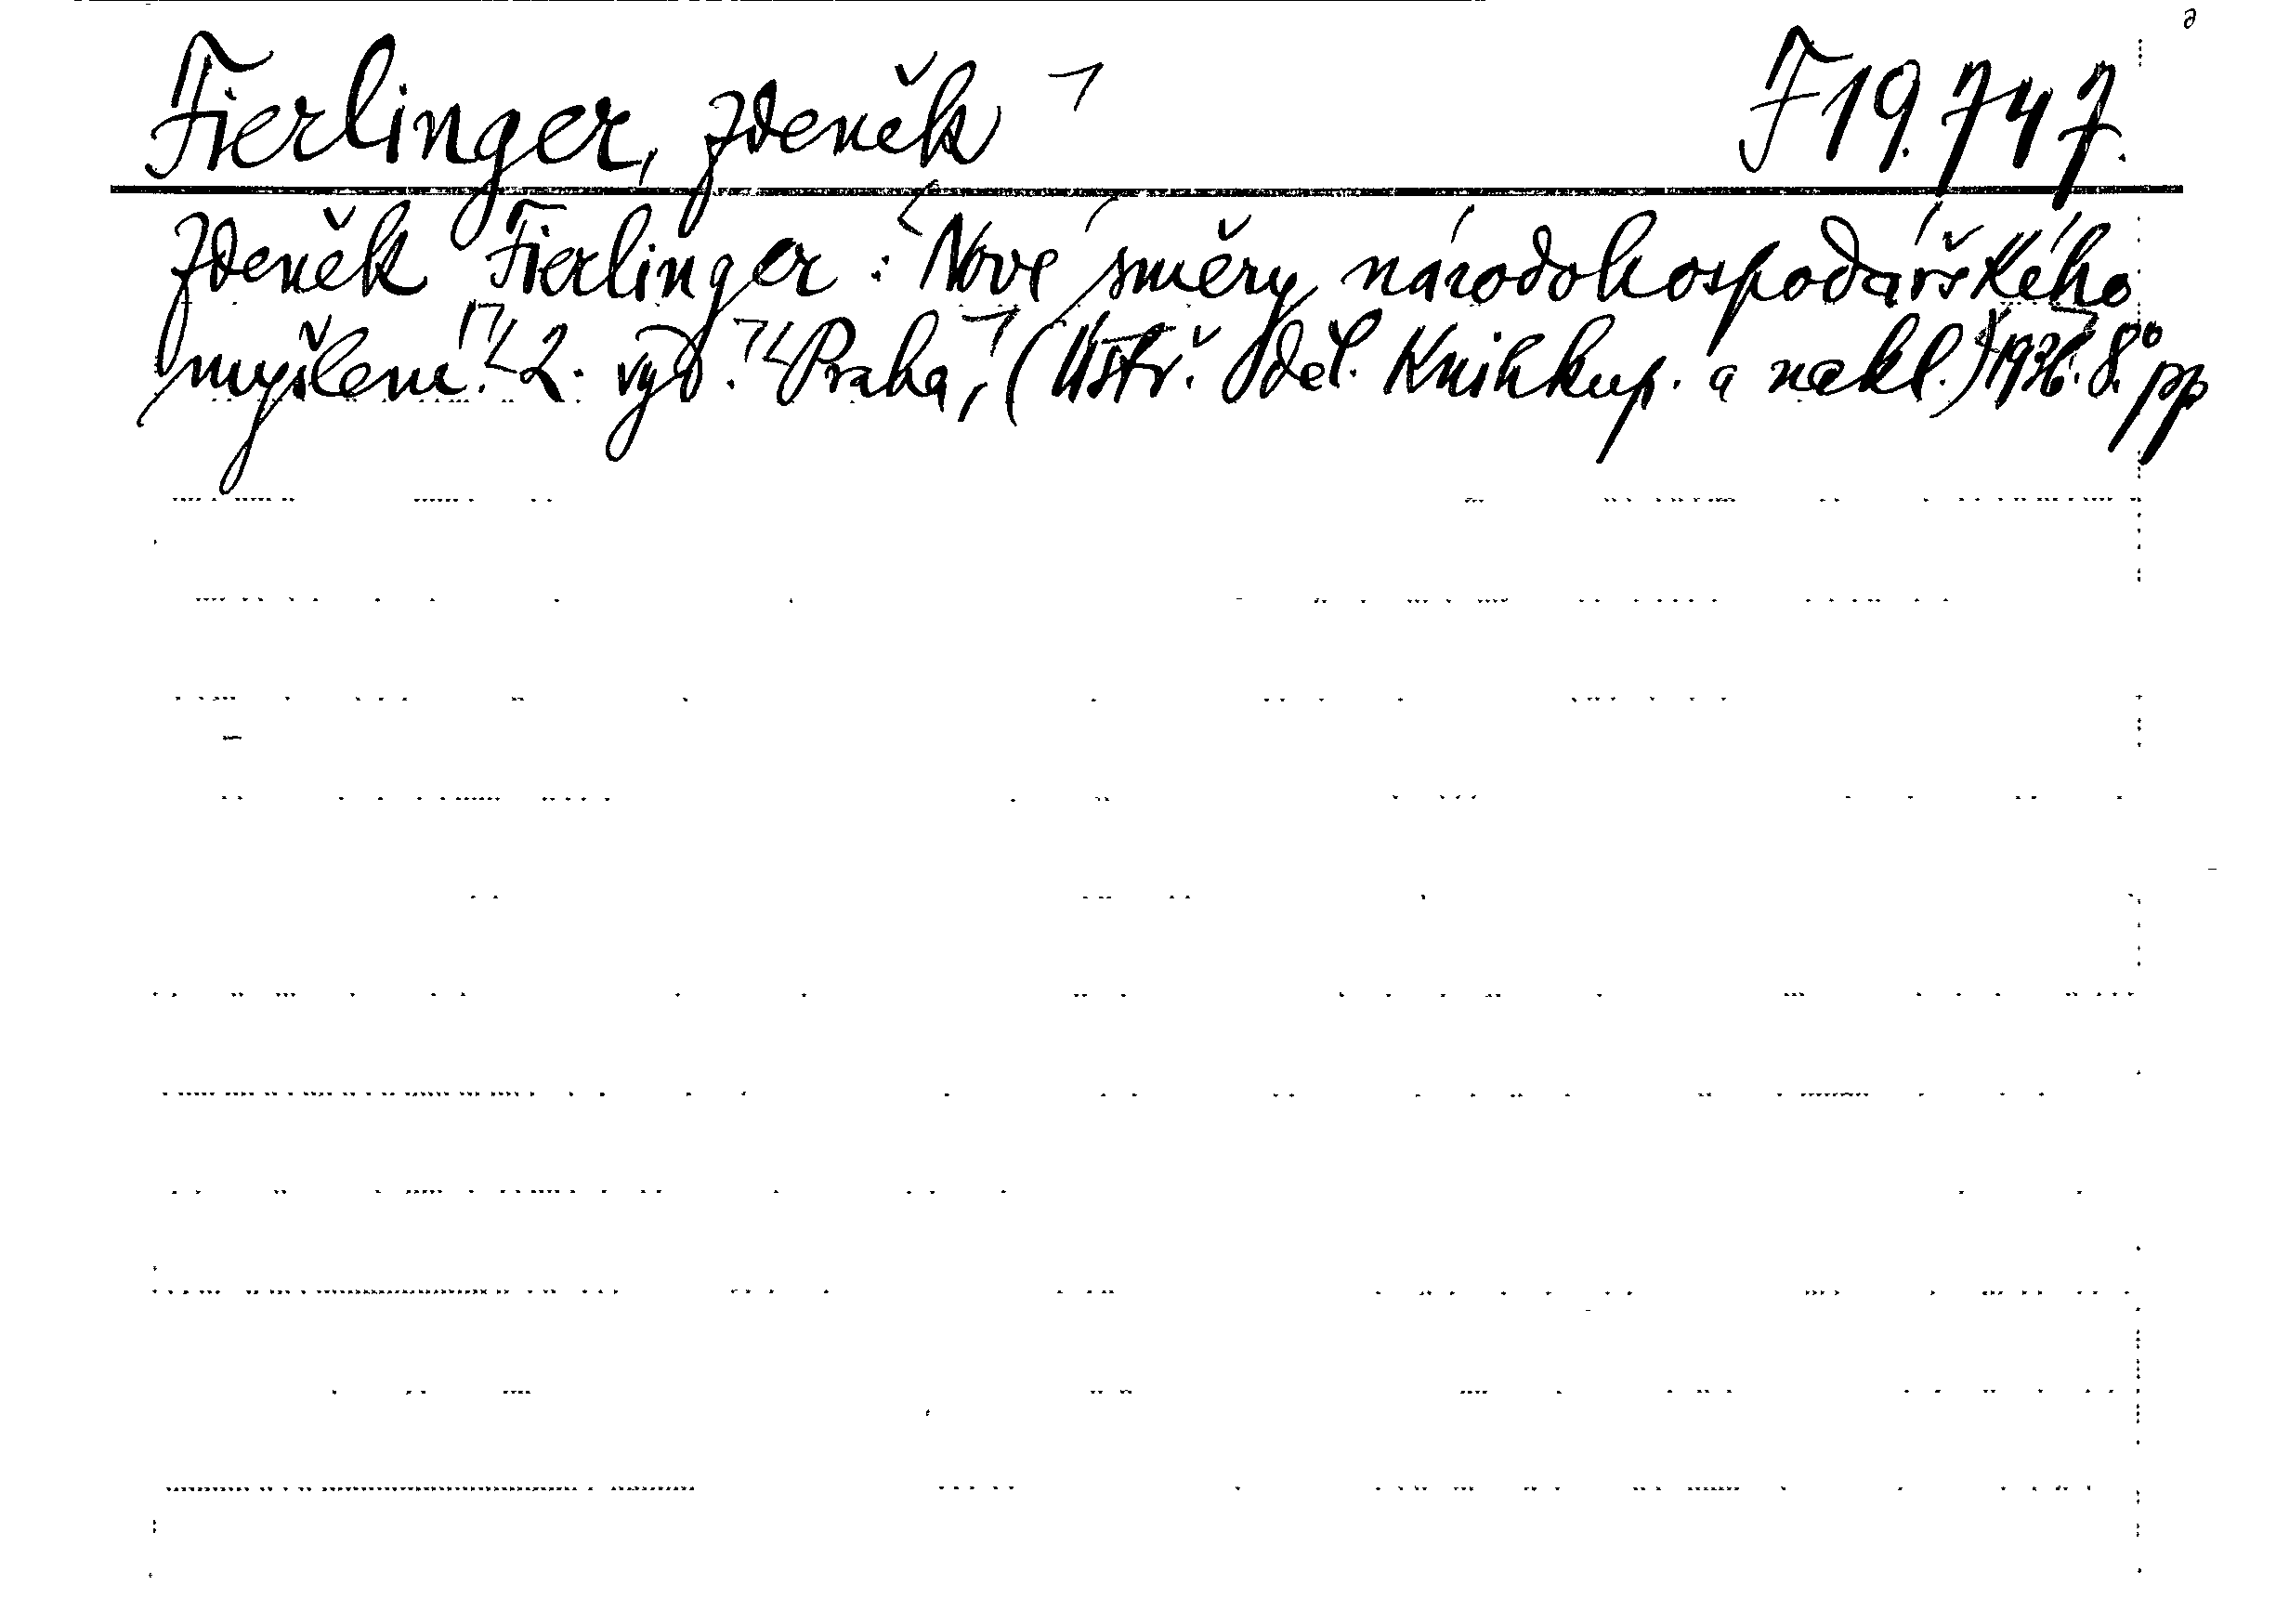 Fierlinger, Zdeněk F 19.747.
Zdeněk Fierlinger: Nové směry národohospodářského
myšlení. 2. vyd. Praha, (Ústř. děl. Knihkup. a nakl.) 1936. 8° pp